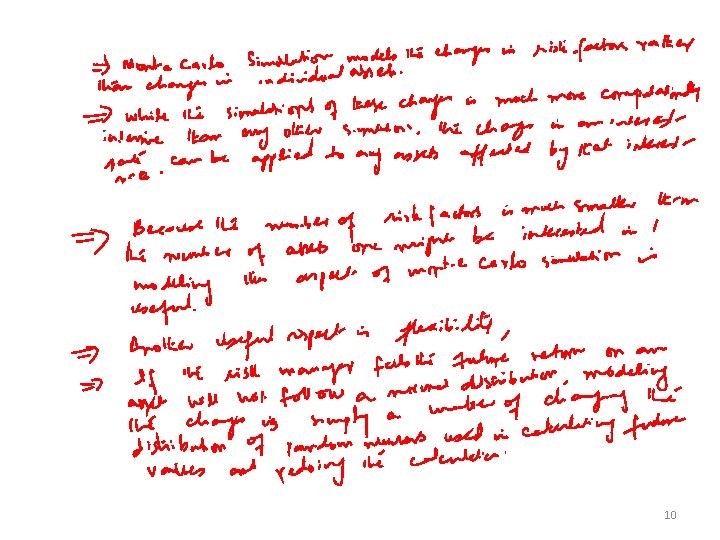 ⇒ Monte Carlo Simulation models the changes in risk factors rather
than changes in individual assets.
⇒ While the simulations of these changes is much more computationally
intensive than any other simulation. The change in an interest
rate can be applied to any assets affected by that interest
rate.
⇒ Because the number of risk factors is much smaller than
the number of assets one might be interested in
modelling this aspect of monte carlo simulation is
useful.
⇒ Another useful aspect is flexibility,
⇒ If the risk manager feels the future return on an
asset will not follow a normal distribution, modeling
the changes is simply a number of changing the
distribution of random numbers used in calculating future
values and redoing the calculation.
10